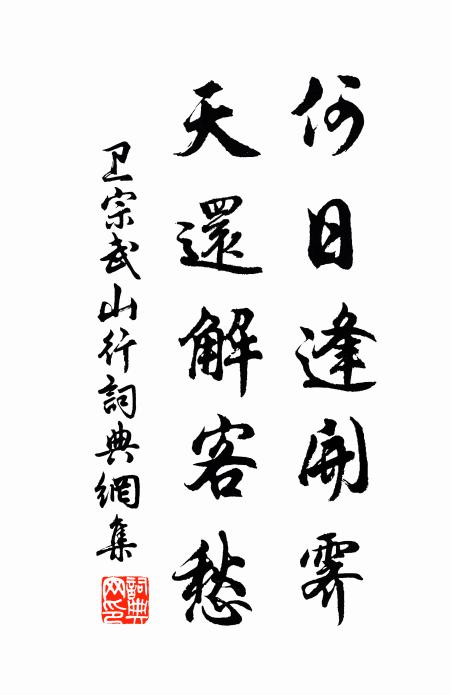 何日逢開霽
天還解客愁
卫宗武山行詞典網集
詞典网印